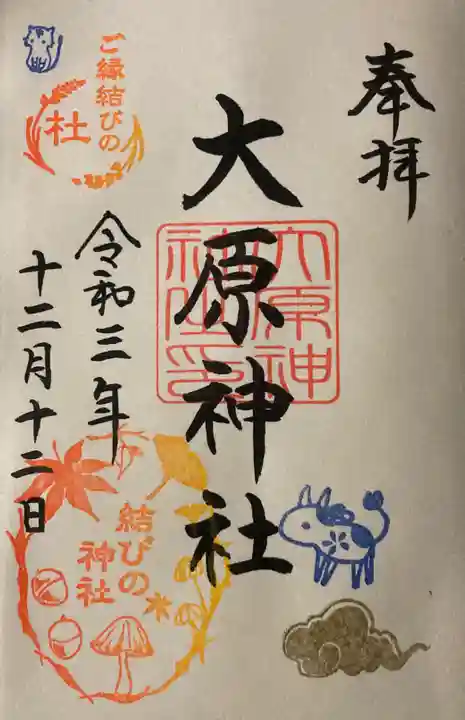 奉拝
大原神社
大原神
社印
令和三年
十二月十二日
ご縁結びの
杜
結びの
神社